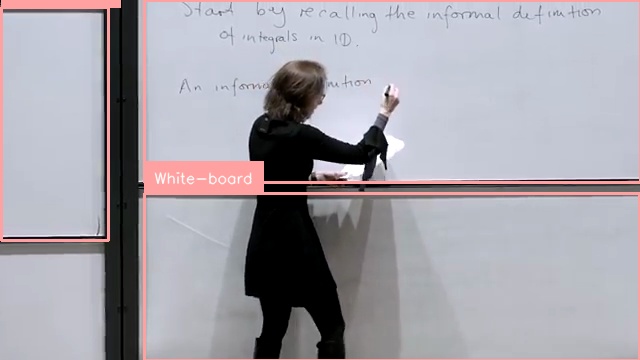 Start by recalling the informal definition
of integrals in 1D.
An informa nition
White-board